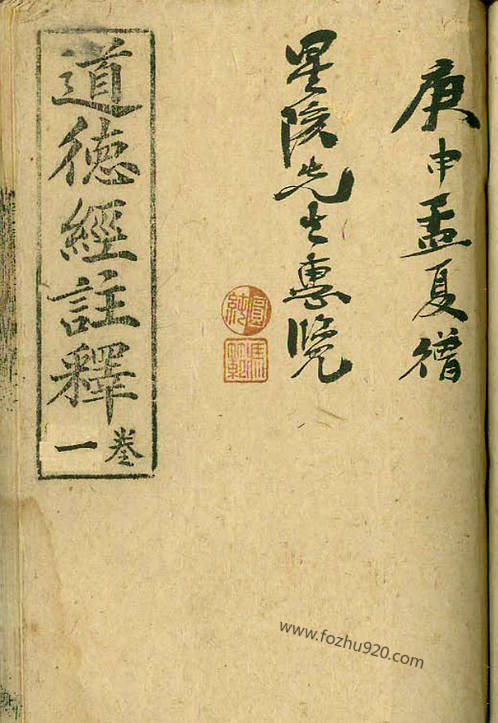 庚申孟夏
星陔先生惠覽
道德經註釋
卷一
www.fozhu920.com